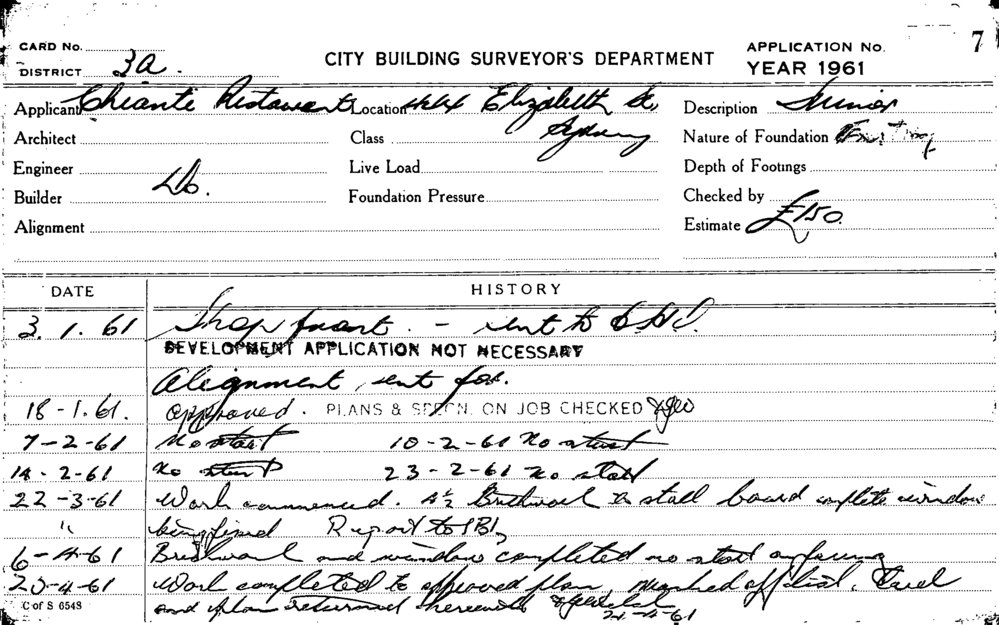 7
CARD No.
DISTRICT 3a.
CITY BUILDING SURVEYOR'S DEPARTMENT
APPLICATION No.
YEAR 1961
Applicant Chiante Restaurant Location 444 Elizabeth St, Description Minor
Architect Class Sydney Nature of Foundation Existing
Engineer Live Load Depth of Footings
Builder Do. Foundation Pressure Checked by
Alignment Estimate £150.
DATE HISTORY
3.1.61 Shop front. - sent to
DEVELOPMENT APPLICATION NOT NECESSARY
Alignment sent for.
18-1.61. approved. PLANS & SPECN. ON JOB CHECKED
7-2-61 No start 10-2-61 No start
14-2-61 No start 23-2-61 No start
22-3-61 Work commenced. 4½ Brickwork to stall board complete window
" being fixed Report to
6-4-61 Brickwork and window completed no start on facing
20-4-61 Work completed to approved plan, marked off list. Card
and plan returned herewith
21-4-61
C of S 6548